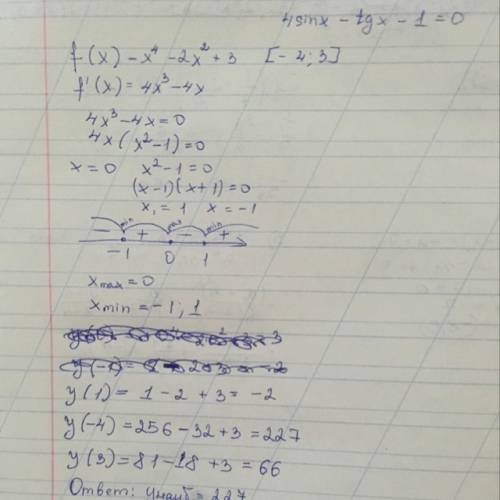 4sinx - tgx - 1 = 0
f(x) - x⁴ - 2x² + 3 [-4; 3]
f'(x) = 4x³ - 4x
4x³ - 4x = 0
4x(x² - 1) = 0
x = 0 x² - 1 = 0
(x - 1)(x + 1) = 0
x₁ = 1 x = -1
- min + max - min +
-1 0 1
xmax = 0
xmin = -1; 1
y(1) = 1 - 2 + 3 = -2
y(-4) = 256 - 32 + 3 = 227
y(3) = 81 - 18 + 3 = 66
Ответ: yнаиб = 227